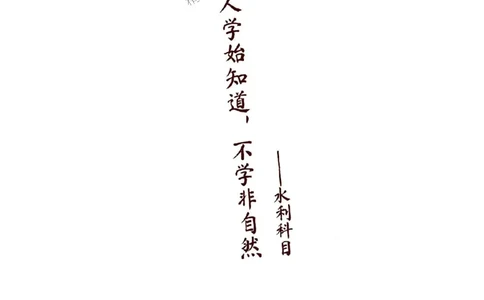 人学始知道，不学非自然
——水利科目